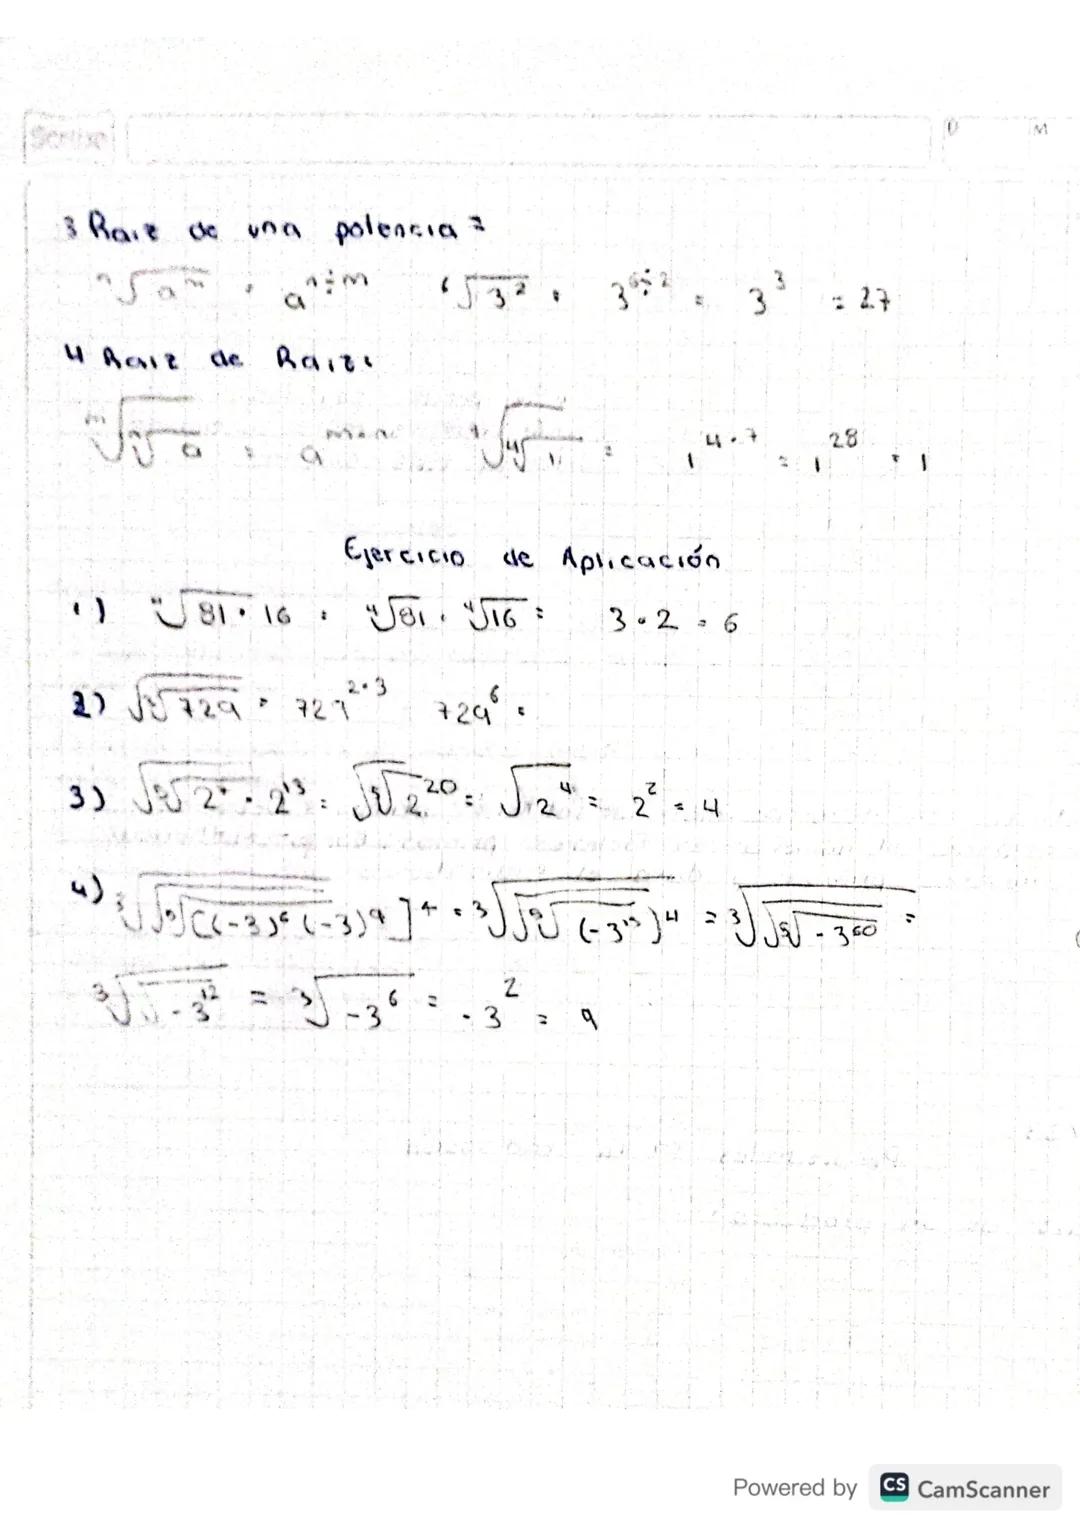 Scribe
D M
3 Raiz de una potencia =
ⁿ√aᵐ = a^(n÷m) ⁶√3² = 3^(6÷2) = 3³ = 27
4 Raiz de Raiz:
ᵐ√ⁿ√a = a^(m·n) ⁷√⁴√1 = 1^(4·7) = 1²⁸ = 1
Ejercicio de Aplicación
1) ⁴√81·16 = ⁴√81 · ⁴√16 = 3·2 = 6
2) √³√729 = 729^(2·3) 729⁶ =
3) √⁵√2⁷·2¹³ = √⁵√2²⁰ = √2⁴ = 2² = 4
4) ³√√⁵√[(-3)⁶(-3)⁹]⁴ = ³√√⁵√(-3¹⁵)⁴ = ³√√⁵√-3⁶⁰ =
³√√-3¹² = ³√-3⁶ = -3² = 9
Powered by CS CamScanner